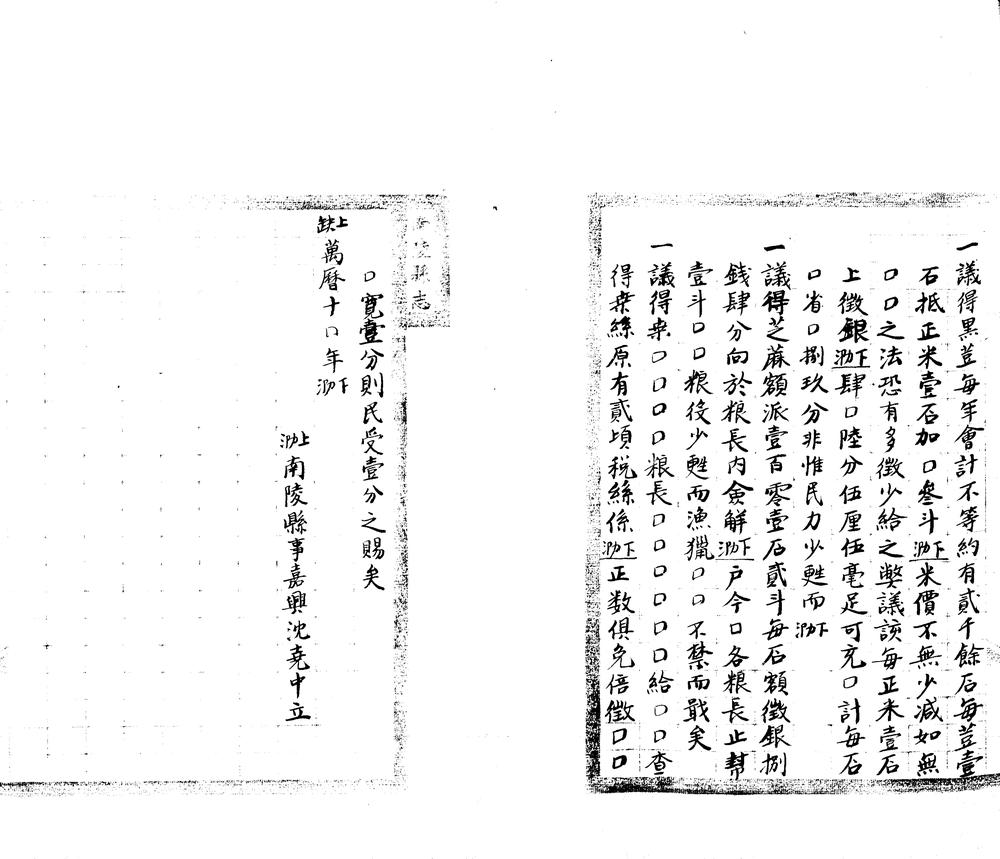 一議得黑荳每年會計不等約有貳千餘石每荳壹
石抵正米壹石加口叄斗下泐米價不無少減如無
口口之法恐有多徵少給之獘議該每正米壹石
上徵銀下泐肆口陸分伍厘伍毫足可充口計每石
口省口捌玖分非惟民力少甦而下泐
一議得芝蔴額派壹百零壹石貳斗每石額徵銀捌
錢肆分向於粮長內僉解下泐戶今口各粮長止幫
壹斗口口粮役少甦而漁獵口口不禁而戢矣
一議得桒口口口口粮長口口口口口口給口口查
得桒絲原有貳頃稅絲係下泐正数俱免倍徵口口
陵縣志
口寬壹分則民受壹分之賜矣
上缺萬曆十口年下泐
上泐南陵縣事嘉興沈堯中立